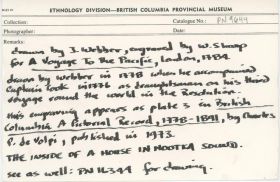 ETHNOLOGY DIVISION—BRITISH COLUMBIA PROVINCIAL MUSEUM
Collection: Catalogue No.: PN 9644
Photographer: Date:
Remarks:
drawn by J. Webber, engraved by W. Sharp
for A Voyage To The Pacific, London, 1784.
drawn by Webber in 1778 when he accompanied
Captain Cook in 1776 as draughtsman on his third
Voyage round the world in the Resolution.
This engraving appears as plate 3 in British
Columbia A Pictorial Record, 1778-1891, by Charles
P. de Volpi, published in 1973.
THE INSIDE OF A HOUSE IN NOOTKA SOUND.
see as well: PN 16344 for drawing.